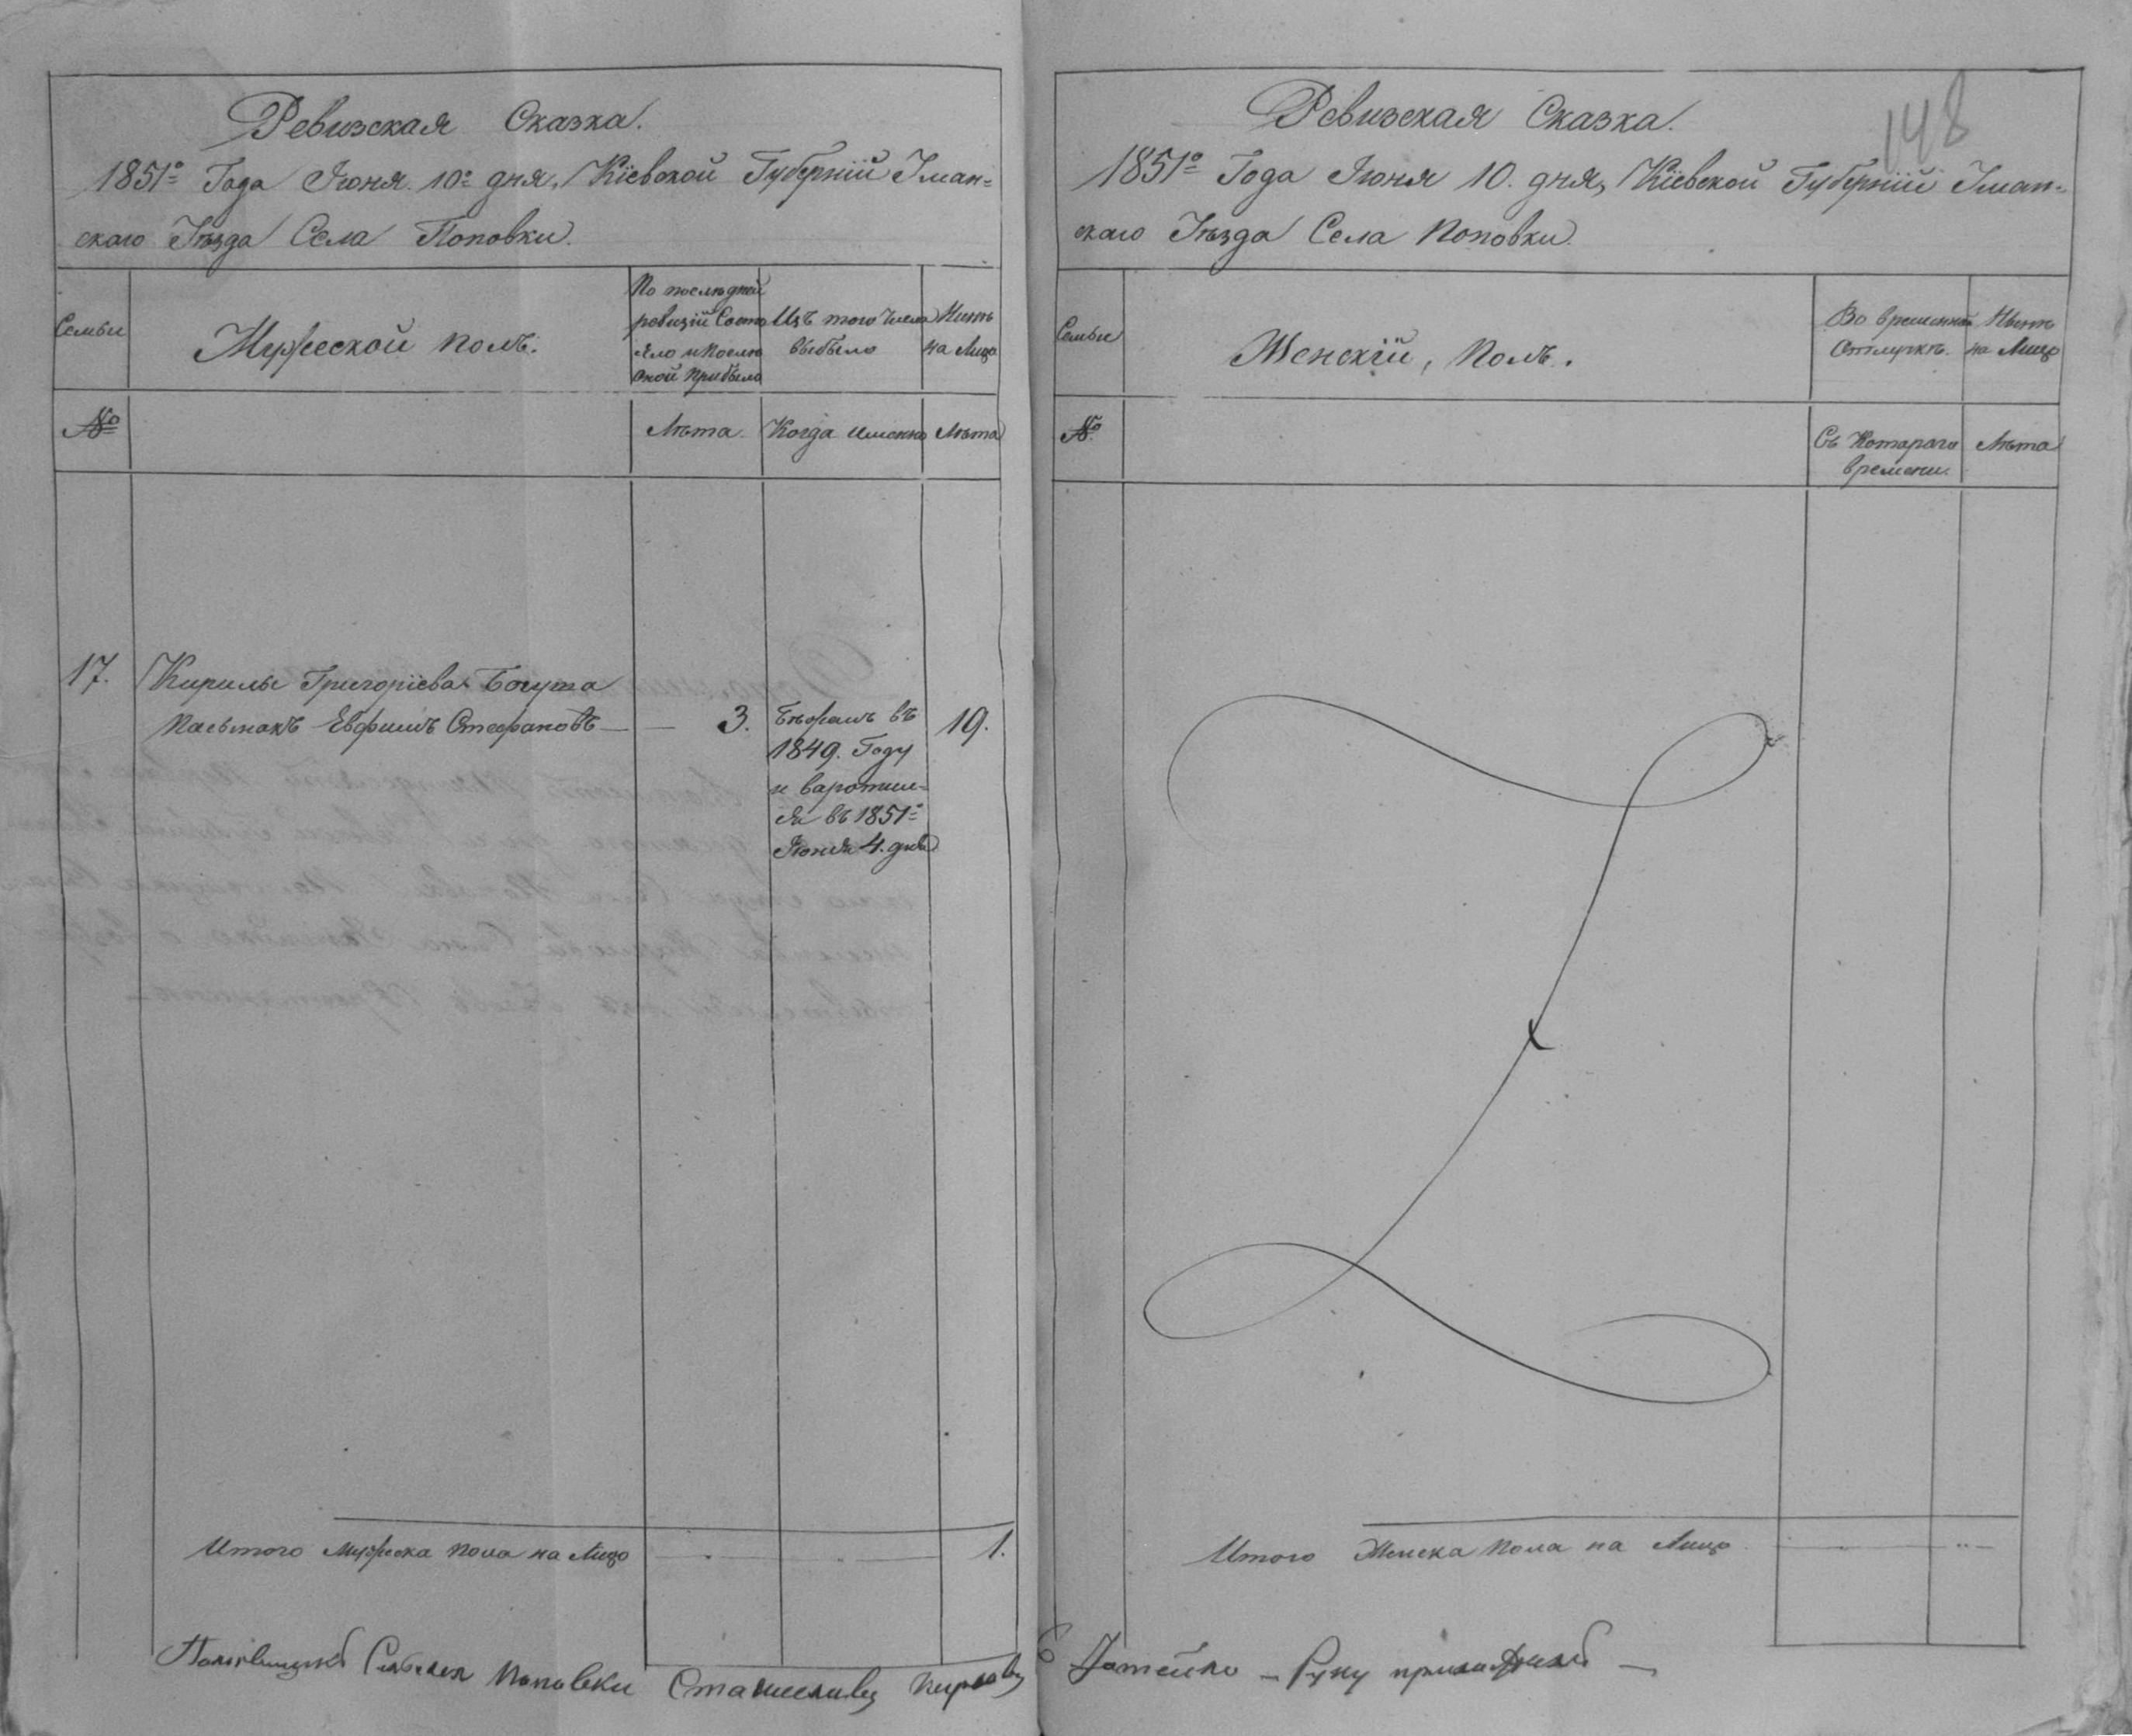 Ревизская Сказка.
1851го Года Іюня 10го дня, Кіевской Губерніи Уман=
скаго Уѣзда Села Поповки.
Семьи
Мужеской полъ.
По послѣдней
ревизіи Состо
яло и послѣ
оной прибыло
Изъ того числа
выбыло
Нынѣ
на Лицо
№
Лѣта.
Когда именно
Лѣта
17.
Кирилы Григоріева Богута
Пасынокъ Евфимъ Стефановъ — — 3.
Бѣжалъ въ
1849. Году
и варотил=
ся въ 1851го
Іюня 4. дня
19.
Итого Мужеска пола на Лицо
1.
148
Ревизская Сказка.
1851го Года Іюня 10. дня, Кіевской Губерніи Уман=
скаго Уѣзда Села Поповки.
Семьи
Женскій, полъ.
Во временной
Отлучкѣ.
Нынѣ
на Лицо
№
Съ Котораго
времени.
Лѣта
Итого Женска пола на Лицо
Поповки Станиславъ — Руку приложилъ —